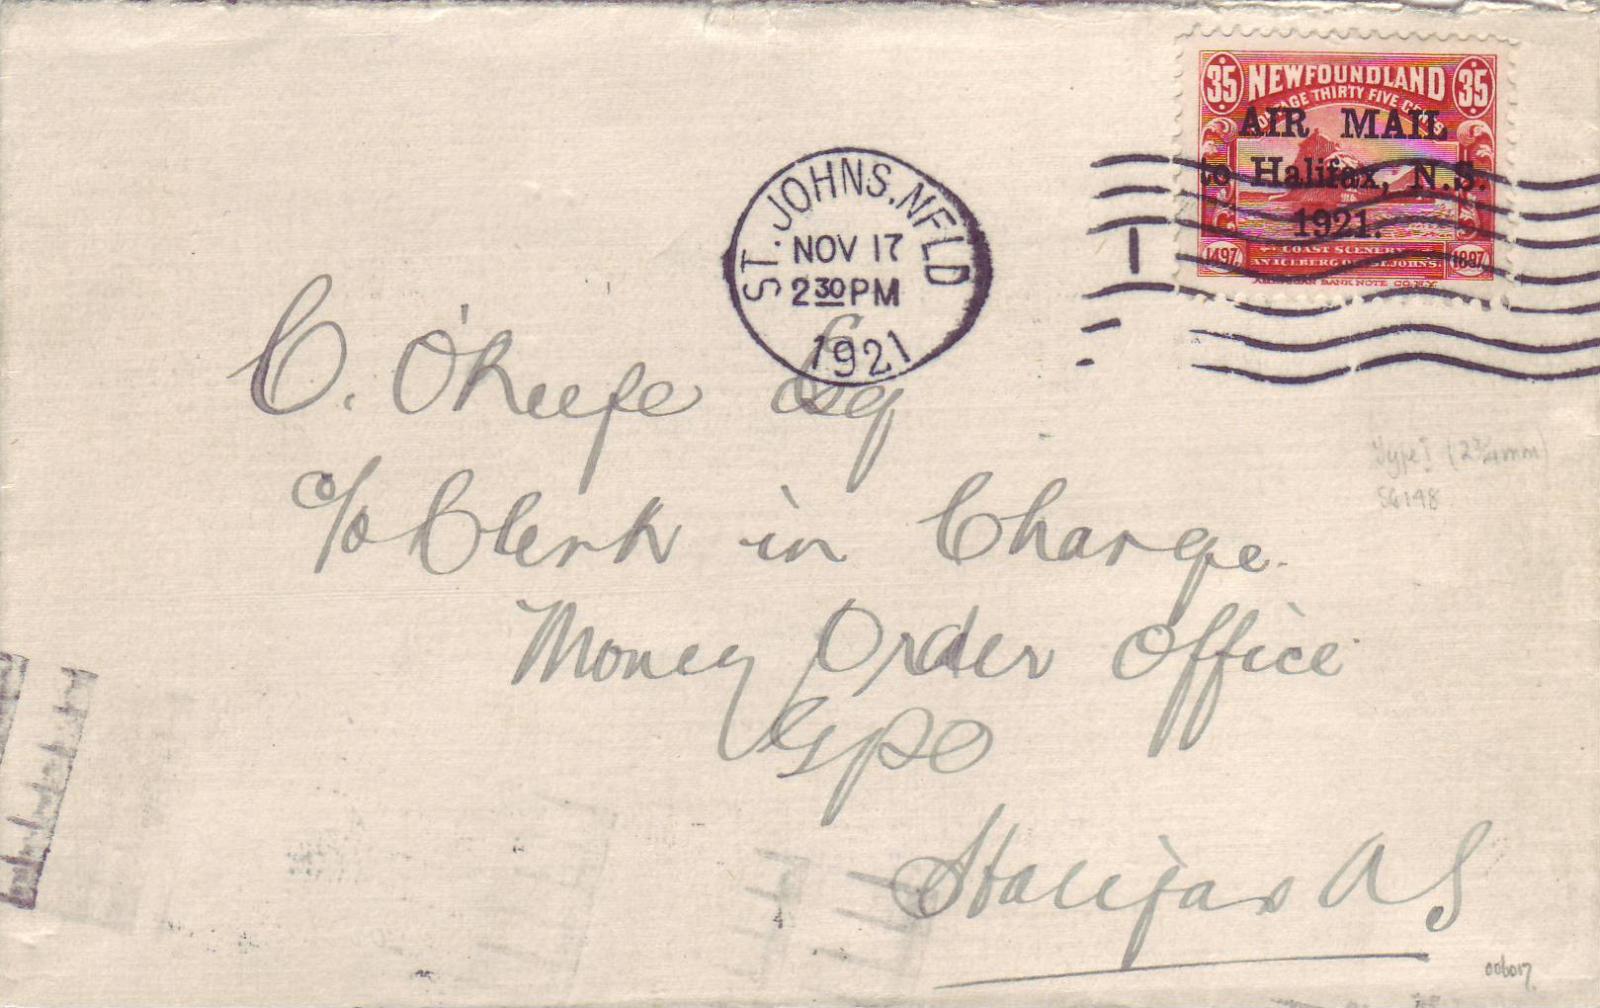 35 NEWFOUNDLAND 35
POSTAGE THIRTY FIVE CENTS
AIR MAIL
to Halifax, N.S.
1921.
COAST SCENERY
1497 AN ICEBERG OFF ST. JOHNS. 1897
AMERICAN BANK NOTE CO. N.Y.
ST. JOHNS. NFLD
NOV 17
2 30 PM
1921
C. O'Keefe Esq
c/o Clerk in Charge.
Money Order Office
GPO
Halifax N S
Type I (2¾mm)
SG148
006017